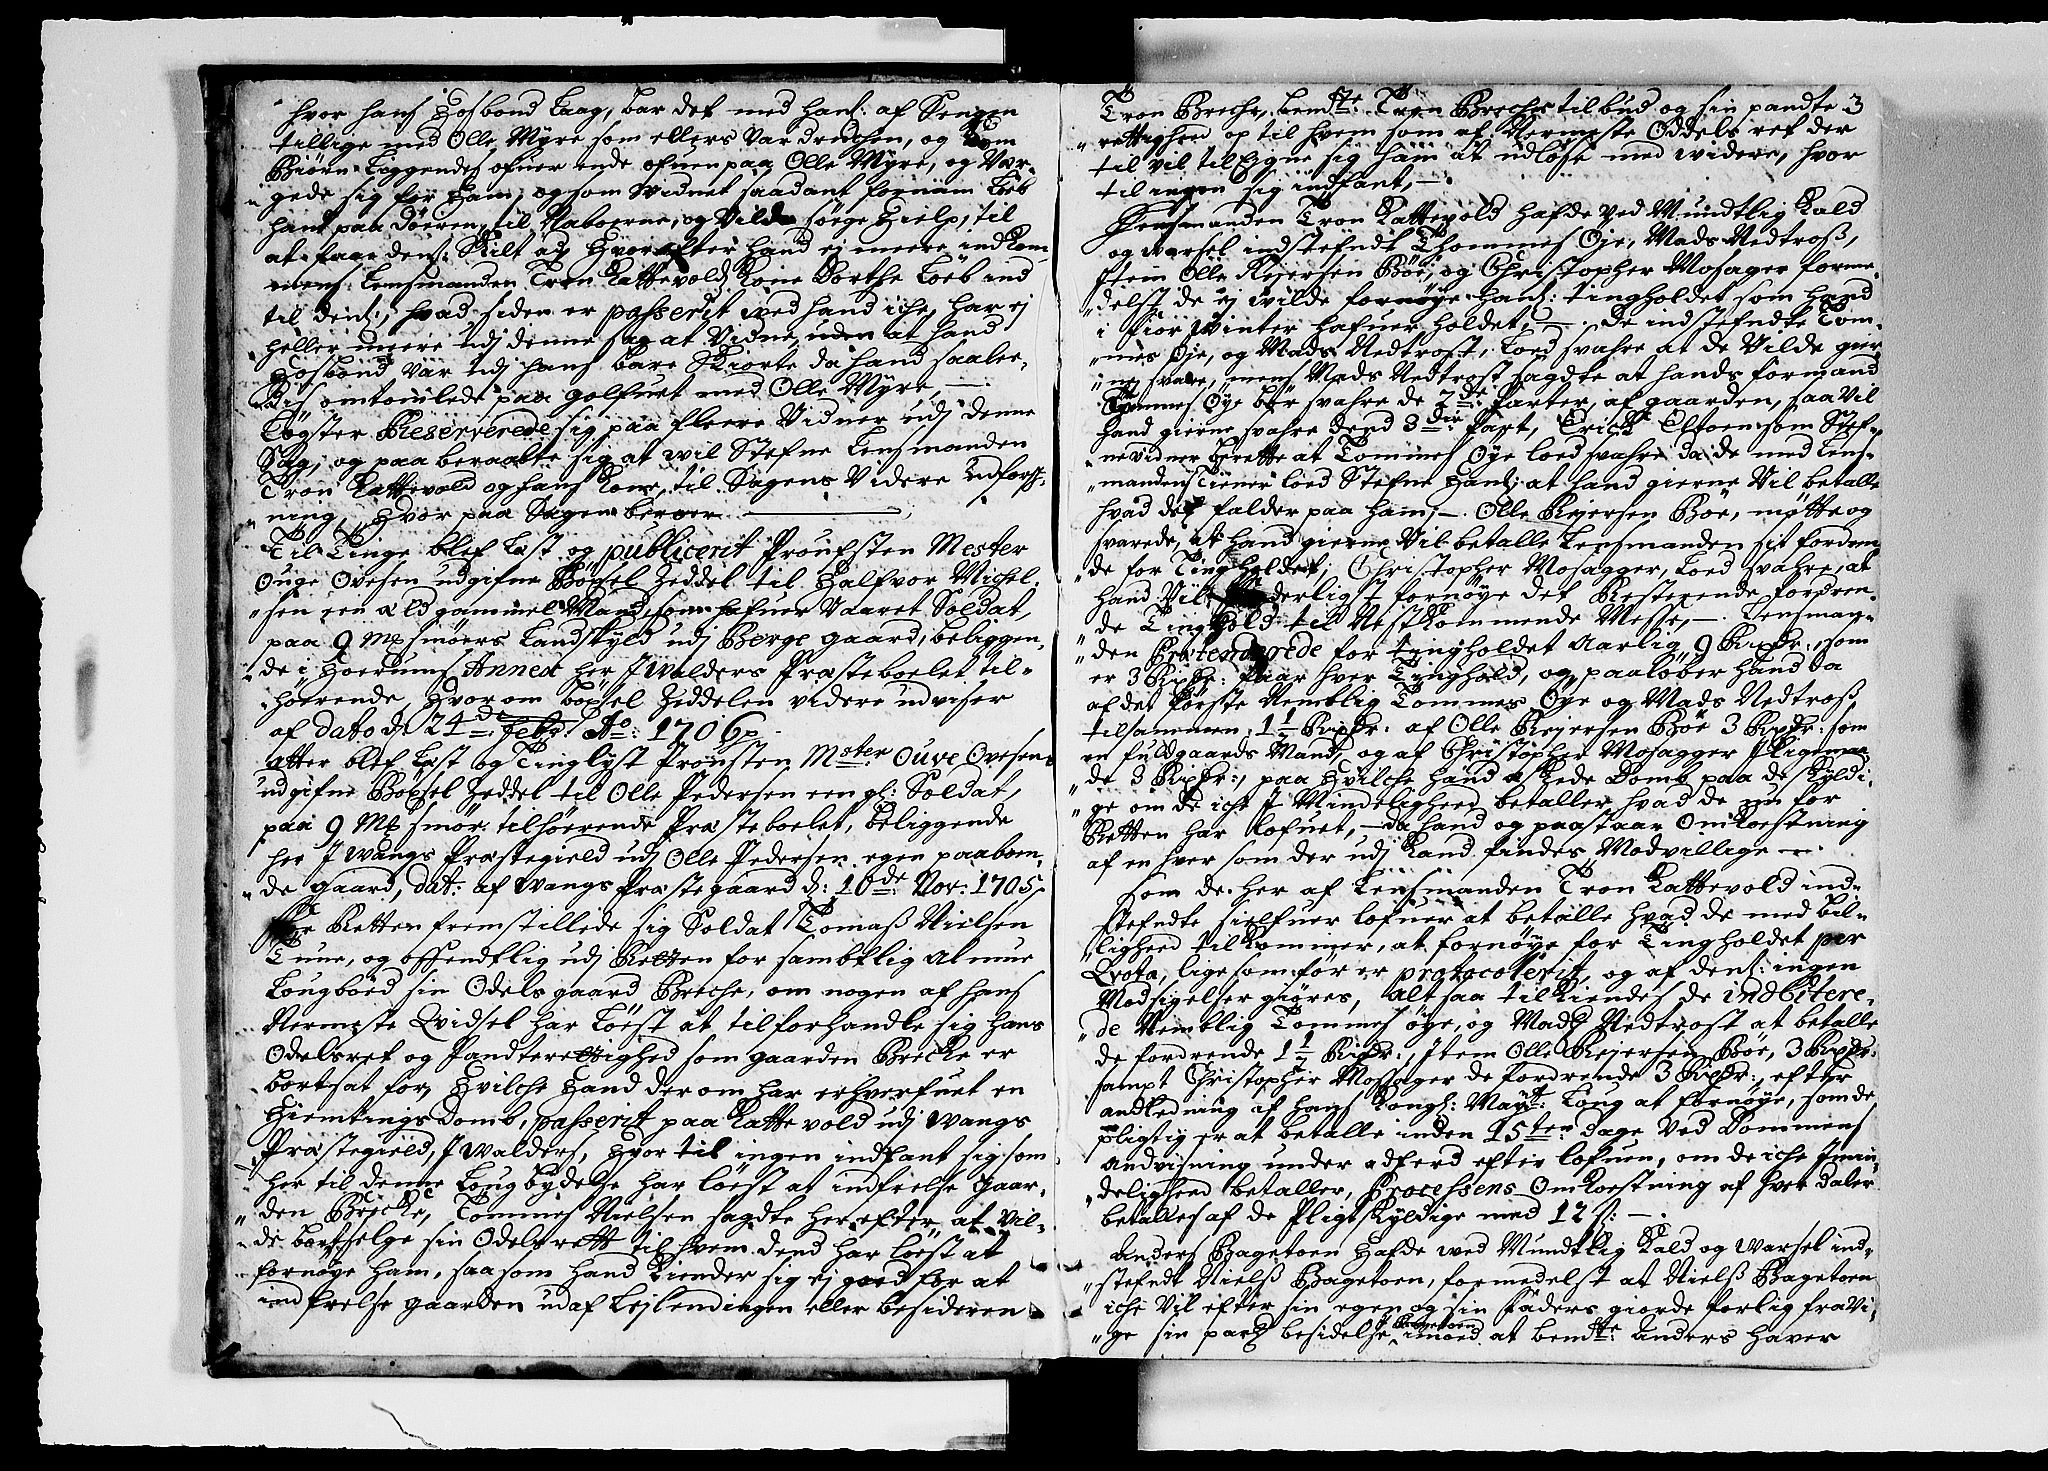 hvor hans Hosbond Laag, bar det med hans: af Sengen
tillige med Olle Myre som ellers var druchen, og kom
Biørn Liggendes ofuer ende ofuen paa Olle Myre, og Vær-
gede sig for ham, og som Vidnet saadant fornam Løb
hans paa Døeren, til Naboerne, og Vilde søge Hielp, til
at faa dem: Skilt ad, Hvorefter hand ej meere indkom
mens Lensmanden Tron Kattevolds Kone Dorthe Løeb ind
til dem, hvad siden er passerit ved hand iche, har ej
heller meere udj denne sag at Vidne, uden at hand
Hosbond var udj hans bare Skiorte da hand saalee-
dis omtomlede paa golfuet med Olle Myre, —
Løgster Reserverede sig paa fleere Vidner udj denne
Sag, og paa beraabte sig at wil Stefne Lensmanden
Tron Kattevold og hans Kone, til Sagens Videre Udførs-
ning, Hvor paa Sagen beroer —
Til Tinge blef Læst og publicerit Proufsten Mester
Ouge Ovesen udgifne Bøxsel Zeddel til Halfvor Michel-
sen een ald gammel Mand, som hafuer Vaaret Soldat,
paa 9 Mk smøers Landskyld udj Berge gaard, beliggen-
de i Hoerums Annex her J Walders Præsteboelet til-
hoerende, Hvor om bøxsel Zeddelen videre udviser
af dato d: 24de Febr: Ao: 1706
atter blef Læst og Tinglyst Prousten Mster Ouve Ovesens
udgifne Bøxsel Zeddel til Olle Pedersen een gl: Soldat,
paa 9 Mk smør tilhøerende Præsteboelet, beliggende
her J Wangs Præstegield udj Olle Pedersen egen paaboen-
de gaard, dat: af Wangs Præstegaard d: 10de Nov: 1705
For Retten fremstillede sig Soldat Tomas Nielsen
Tune, og offendtlig udj Retten for samptlig Almue
Lougbøed sin Odels gaard Breche, om nogen af hans
Nermeste Qvidsel har Løest at tilforhandle sig hans
Odelsret og Panderettighed som gaarden Brecke er
bortsat for, Hvilche Hand der om har erhverfuet en
Hiemtings Domb, passerit paa Kattevold udj Wangs
Præstegield, J Walders, Hvor til ingen indfant sig som
her til denne Lougbydelse har løest at indfrelse gaar-
den Brecke, Tommes Nielsen sagde her efter at Vil-
de bortselge sin Odelsrett til hvem dend har Løest at
fornøye ham, saasom hand Kiender sig ej goed for at
indfrelse gaarden udaf Lejlendingen eller besideren
Tron Breche, bemte: Tron Breches tilbud og sin pandte 3
rettighed op til hvem som af Nermeste Oddels ret der
til vil tilEigne sig ham at udløse med widere, hvor
til ingen sig indfant, —
Lensmanden Tron Kattevold hafde Ved Mundtlig Kald
og warsel indstefndt Thommes Øje, Mads Nedtros,
item Olle Rejersen Böe, og Christopher Mosager forme-
delst de ej wilde fornøye hans: tingholdet som hand
i fior Winter hafuer holdet, — De indstefndte Tom-
mes Øje, og Mads Nedtrost, Loed svahre at de Vilde ger-
ne svare, mens Mads Nedtrost sagdte at hands formand
Tommes Øye bør svahre de 2de Parter, af gaarden, saa Vil
hand gierne svahre dend 3die Part, Erick Eltoen som Stef-
nevidner berette at Tommes Øye loed svahre da de med Lens-
mandens Tiener loed Stefne hans: at hand gierne Vil betalle
hvad det falder paa ham, — Olle Rejersen Böe, møtte og
svarede, at hand gierne Vil betalle Lensmanden sit fordren-
de for Tingholdet; Christopher Mosagger, Loed svahre, at
hand Vil ... derligst fornøye det Resterende fordren-
de Tinghold til Nestkommende Messe, — Lensman-
den Prætenderede for tingholdet aarlig 9 Rixdr: som
er 3 Rixdr: Aar hver Tinghold, og paaløber hand da
af det første Nemblig Tommes Øye og Mads Nedtros
tilsammen, 1½ Rixdr: af Olle Rejersen Böe 3 Rixdr: som
en fuldgaards Mand, og af Christopher Mosagger Ligemaa-
de 3 Rixdr:, paa Hvilche hand æskede Domb paa de skyldi-
ge om de iche J Mindelighed betaller hvad de nu for
Retten har lofuet, — da hand og paastaar Omkostning
af en hver som der udj Kand findes Modvillige —
Som de her af Lensmanden Tron Kattevold ind-
stefndte sielfuer lofuer at betalle hvad de med bil-
lighed tilkommer, at fornøye for Tingholdet per
Qvota, lige som før er protocolerit, og af dem: ingen
Modsigelser giøres, Alt saa tilkiendes de indcitere-
de Nemblig Tommes øye, og Mads Nedtrost at betalle
de fordrende 1½ Rixdr:, Item Olle Rejersen Böe, 3 Rixdr:
sampt Christopher Mosager de fordrende 3 Rixdr:, efter
andledning af hans Kongl: Mayt: Loug at fornøye, som de
pligtig er at betalle inden 15ten dage Ved Dommens
andvisning under adferd efter Lofuen, om de iche J min-
delighed betaller, Processens Omkoestning af hver daler
betalles af de Pligtskyldige med 12 s: —
Anders Bagetoen Hafde wed Mundtlig Kald og Warsel ind-
stefndt Niels Bagetoen, formedelst at Niels Bagetoen
iche Vil efter sin egen og sin faders giorde forlig fravi-
ge sin part besidelse J Bagetoen imoed at bemte: Anders haver